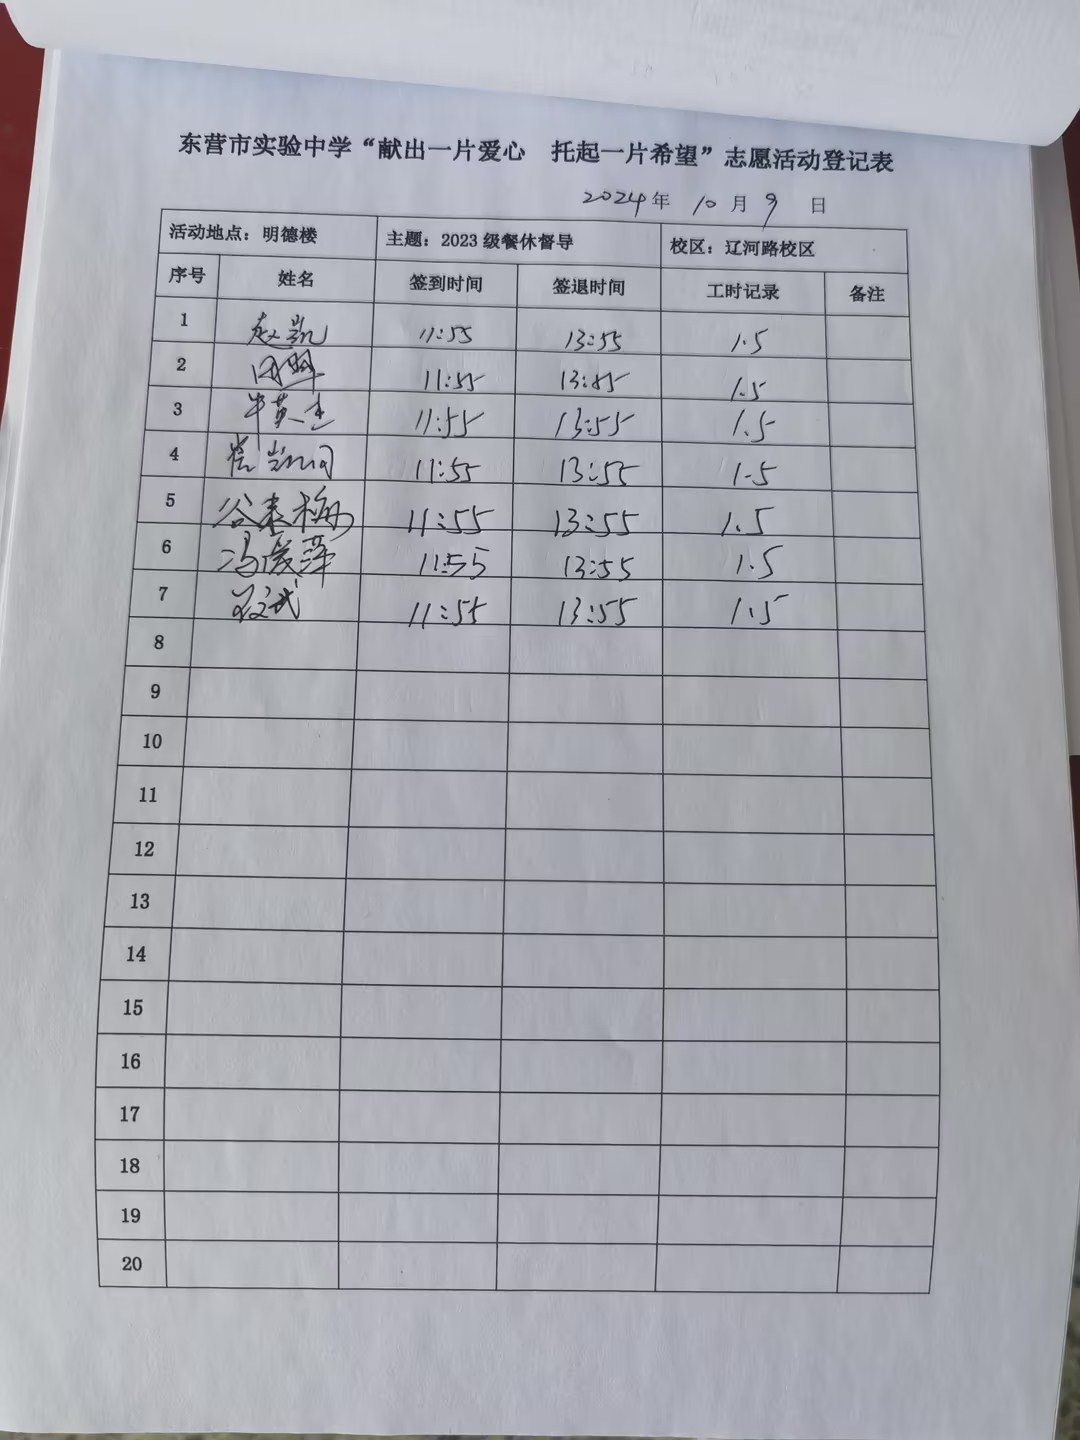 东营市实验中学“献出一片爱心 托起一片希望”志愿活动登记表
2024年 10月9日
活动地点：明德楼 主题：2023级餐休督导 校区：辽河路校区
序号 姓名 签到时间 签退时间 工时记录 备注
1 赵凯 11:55 13:55 1.5
2 11:55 13:55 1.5
3 牛英杰 11:55 13:55 1.5
4 11:55 13:55 1.5
5 谷秦梅 11:55 13:55 1.5
6 11:55 13:55 1.5
7 11:55 13:55 1.5
8
9
10
11
12
13
14
15
16
17
18
19
20